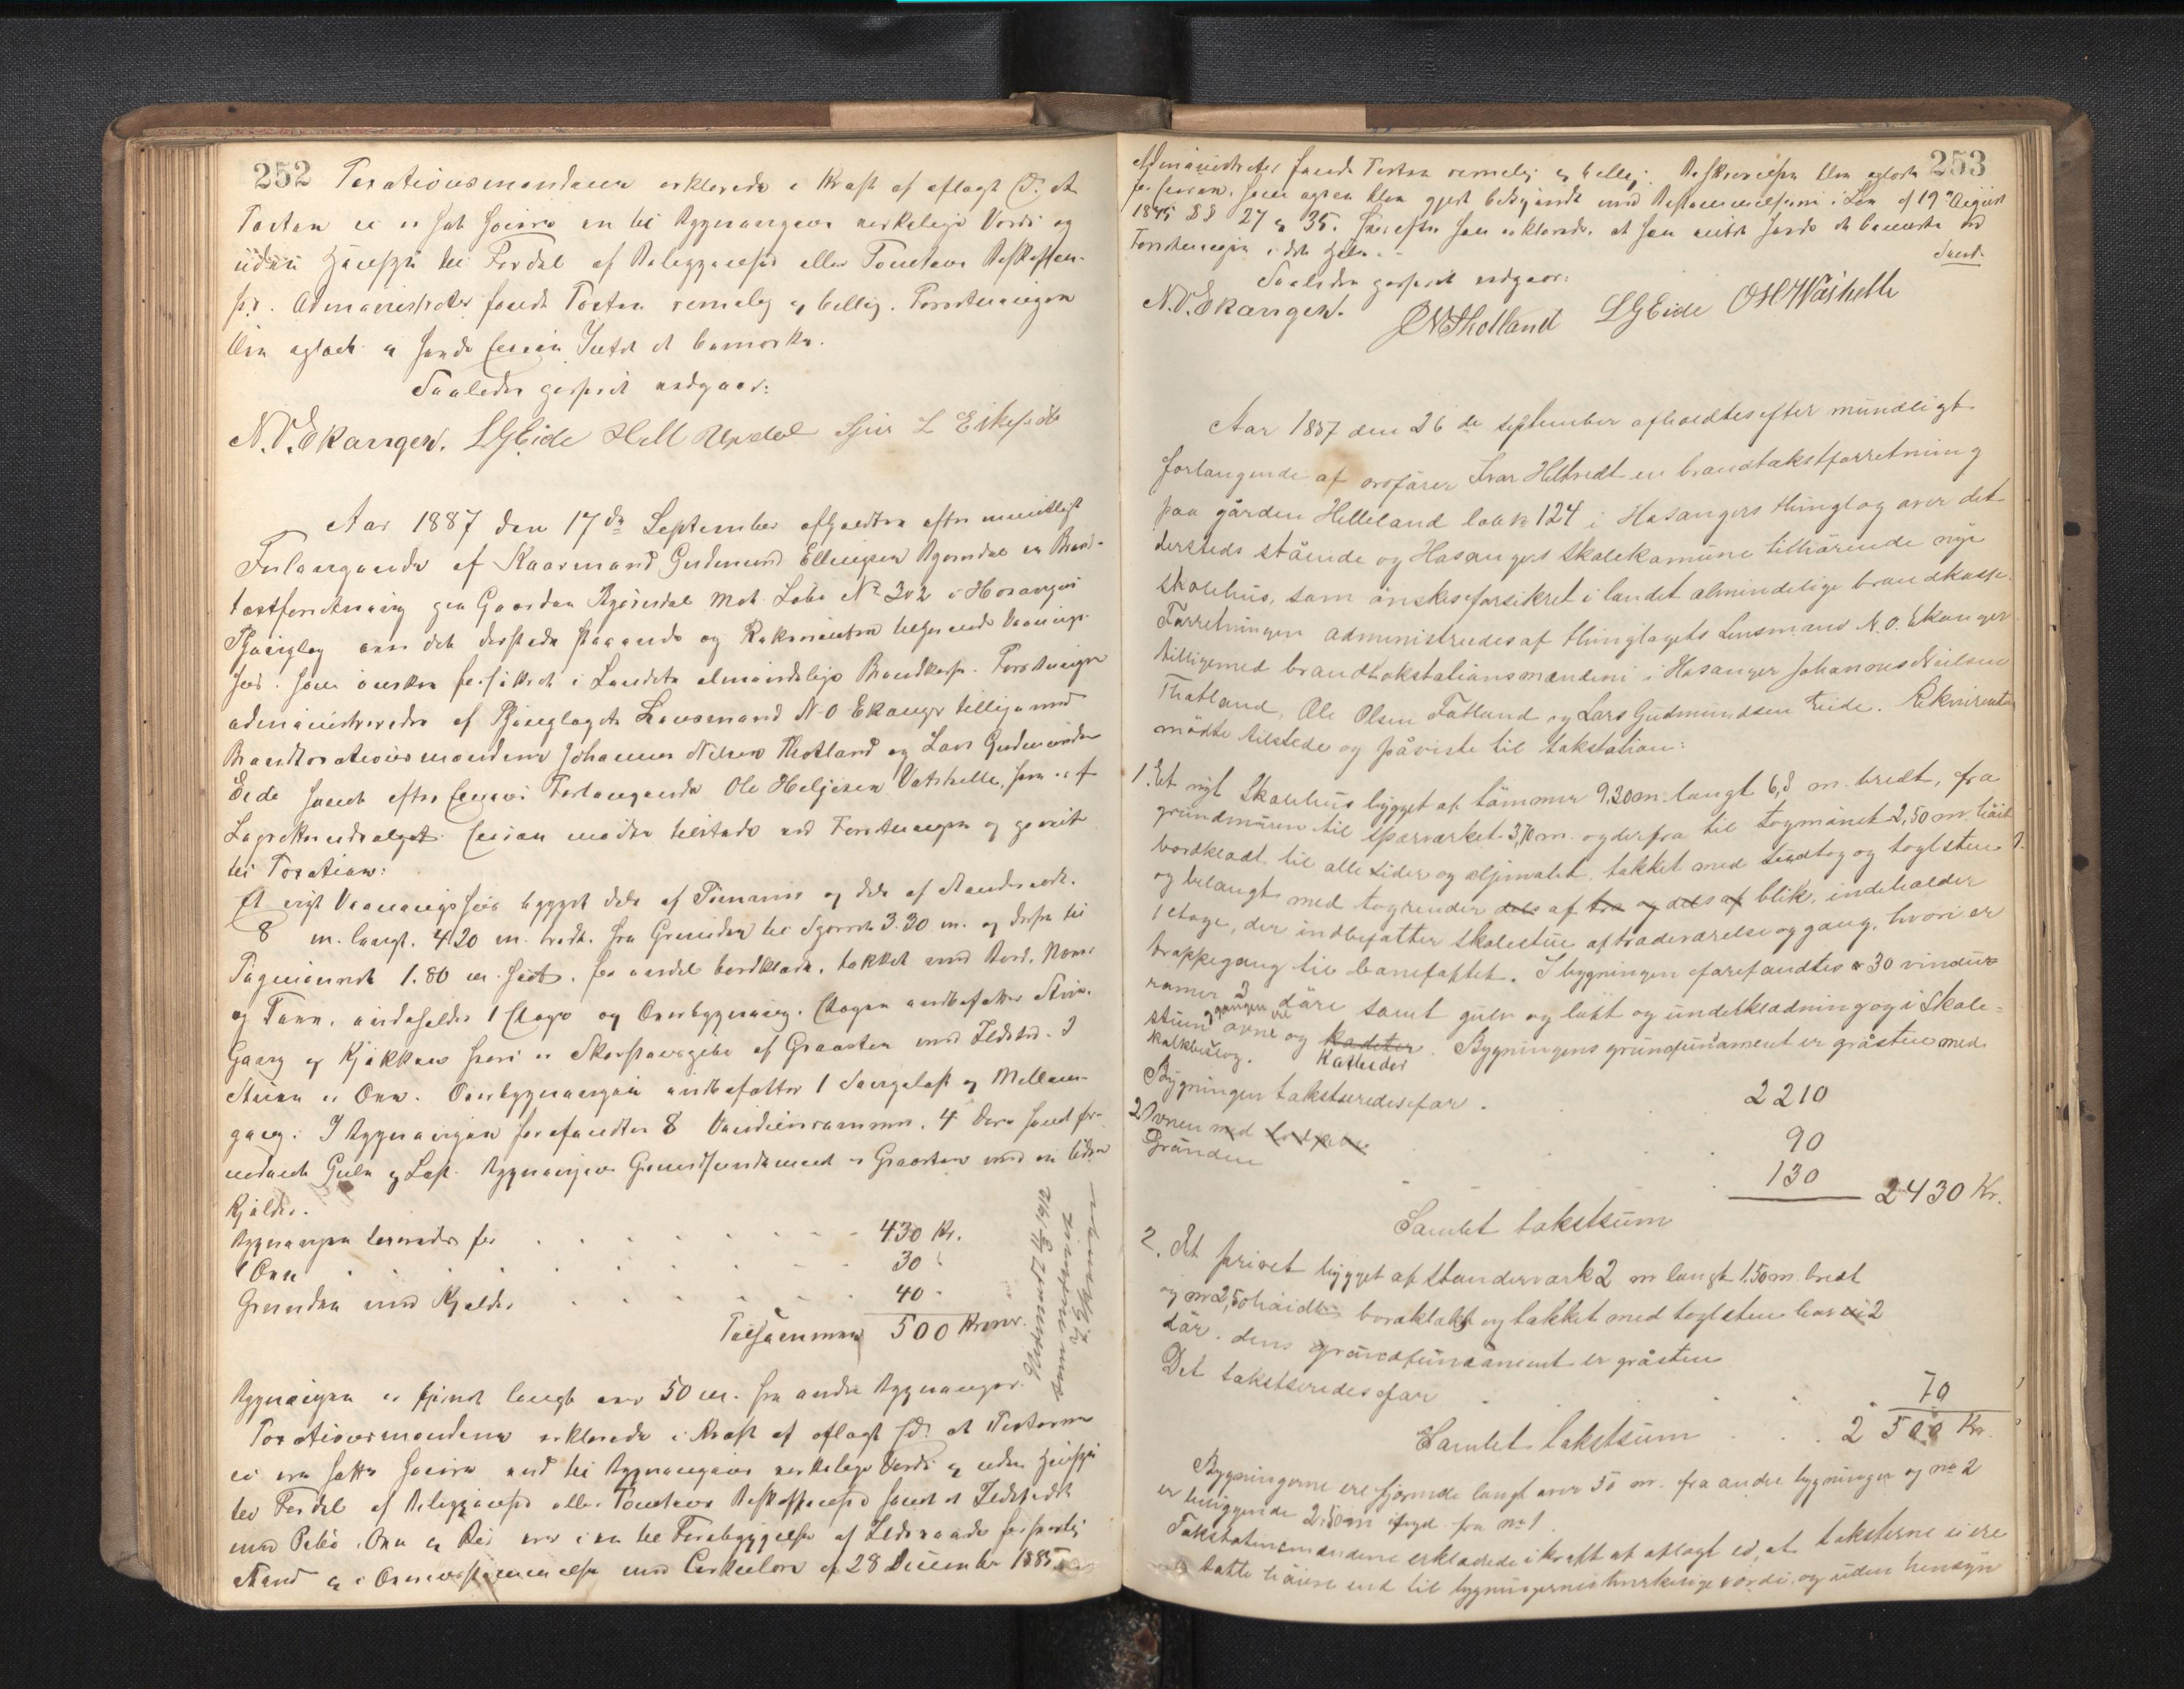 252
Taxationsmændene erklærede i Kraft af aflagt Ed, at
Taxten ei er sat høiere en til Bygningens verkelige Verdi og
uden Hensyn til Fordel af Beliggenhed eller Tomtens Beskaffen-
hed. Administrator fandt Taxten rimelig og billig. Forretningen
blev oplæst og havde Eieren Intet at bemærke.
Saaledes passeret vedgaar:
N.O. Ekanger. LGEide
Aar 1887 den 17de September afholdtes efter mundtligt
Forlangende af Kaarmand Gudmund Ellingsen Bjørndal en Brand-
taxtforretning paa Gaarden Bjørndal Mat. Løbe No 302 i Hosangers
Thinglag over det dersteds staaende og Rekvirenten tilhørende Vaanings-
hus, som ønskes forsikret i Landets almindelige Brandkasse. Forretningen
administreredes af Thinglagets Lensmand N. O Ekanger tilligemed
Brandtaxationsmændene Johannes Nilsen Thotland og Lars Gudmundsen
Eide samt efter Eierens Forlangende Ole Heljesen Vatshelle, som er af
Lagrettemandvalget. Eieren mødte tilstede ved Forretningen og paaviste
til Taxation:
Et nyt Vaaningshus bygget dels af Tømmer og dels af Standerverk.
8 m. langt. 4.20 m. bredt. fra Grunden til Sperrer 3.30 m. og derfra til
Tagmønnet 1.80 m. høit, for en del bordklædt, takket med Bord, Næver
og Torv, indeholder 1 Etage og Overbygning. Etagen indbefatter Stue,
Gang og Kjøkken hvori er Skorstenspibe af Graasten med Ildsted. I
Stuen er Ovn. Overbygningen indbefatter 1 Sængeloft og Mellem-
gang. I Bygningen forefandtes 8 Vinduesrammer, 4 Døre samt for-
nødent Gulv og Loft. Bygningens Grundfundament er Graasten med en liden
Kjelder.
Bygningen taxeredes for 430 Kr.
1 Ovn 30 "
Grunden med Kjelder 40 "
Tilsammen 500 Kroner.
Bygningen er fjernet langt over 50 m. fra andre Bygninger.
Taxationsmændene erklærede i Kraft af aflagt Ed, at Taxterne
ei ere satte høiere end til Bygningens verkelige Verdi og uden Hensyn
til Fordel af Beliggenhed eller Tomtens Beskaffenhed samt at Ildstedet
med Pibe, Ovn og Rør var i en til Forebyggelse af Ildsvaade forsvarlig
Stand og i Overensstemmelse med Cirkulære af 28 December 1885
253
Administrator fandt Taxten rimelig og billig. Beskrivelsen blev oplæst
for Eieren, som ogsaa blev gjort bekjendt med Bestemmelserne i Lov af 19de August
1845 §§ 27 og 35. Hvorefter han erklærede, at han intet havde at bemærke ved
Forretningen i det Hele.
Saaledes passeret vedgaar:
N.O. Ekanger. JNThotland LGEide OHVatshelle
Aar 1887 den 26de september afholdtes efter mundligt
forlangende af ordfører Ivar Helltvedt en brandtakstforretning
paa gården Helleland lob no 124 i Hosangers thinglag over det
dersteds stående og Hosangers skolekomune tilhørende nye
skolehus, som ønskes forsikret i landet almindelige brandkasse.
Forretningen administredes af thinglagets Lensmand N. O. Ekanger
tilligemed brandtakstationsmændene i Hosanger Johannes Nielsen
Thotland, Ole Olsen Fatland og Lars Gudmundsen Eide. Rekvirenten
mødte tilstede og påviste til takstation:
1. Et nyt Skolehus bygget af tømmer 9,30 m. langt 6,8 m. bredt, fra
grundmuren til sperværket 3,70 m. og derfra til tagmønet 2,50 m. høit
bordklædt til alle sider og oljemalet. takket med tagsten
og belangt med tagrender dels af træ og dels af blik, indeholder
1 etage, der indbefatter skolestue aftrædeværelse og gang, hvori er
trappegang til baneloftet. I bygningen forefandtes 30 vindues
ramer 3 döre samt gulv og loft og underklædning og i skole=
stuen ovne og Kateder Katheder. Bygningens grundfundament er gråsten med
kalkbeslag.
Bygningen takstseredes for 2210
2 Ovnen med 90
Grunden 130
Samlet takstsum 2430 Kr.
2. Et privet bygget af standerværk 2 m langt 1,50 m. bredt
og m 2,50 høidt bordklædt og takket med taglsten har 2
dör. dens grundfundament er gråsten
Det takstseredes for 70
Samlet takstsum 2500 Kr.
Bygningerne ere fjærnede langt over 50 m. fra andre bygninger og no 2
er beliggende 2,50 m fra no 1.
Takstationsmændene erklærede i kraft af aflagt ed, at taksterne ei ere
satte höiere end til bygningernes virkelige værdi, og uden hensyn